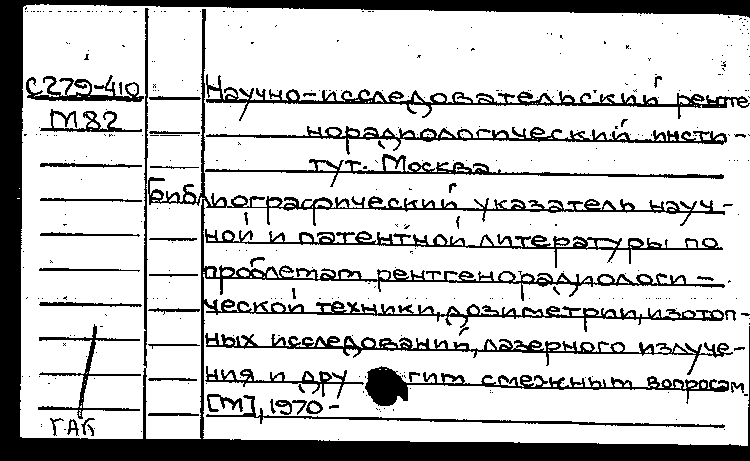 С279-410
М82
Научно-исследовательский рентге
норадиологический инсти-
тут. Москва.
Библиографический указатель науч-
ной и патентной литературы по
проблемам рентгенорадиологи-
ческой техники, дозиметрии, изотоп-
ных исследований, лазерного излуче-
ния и другим смежным вопросам
[М], 1970-
ГАК